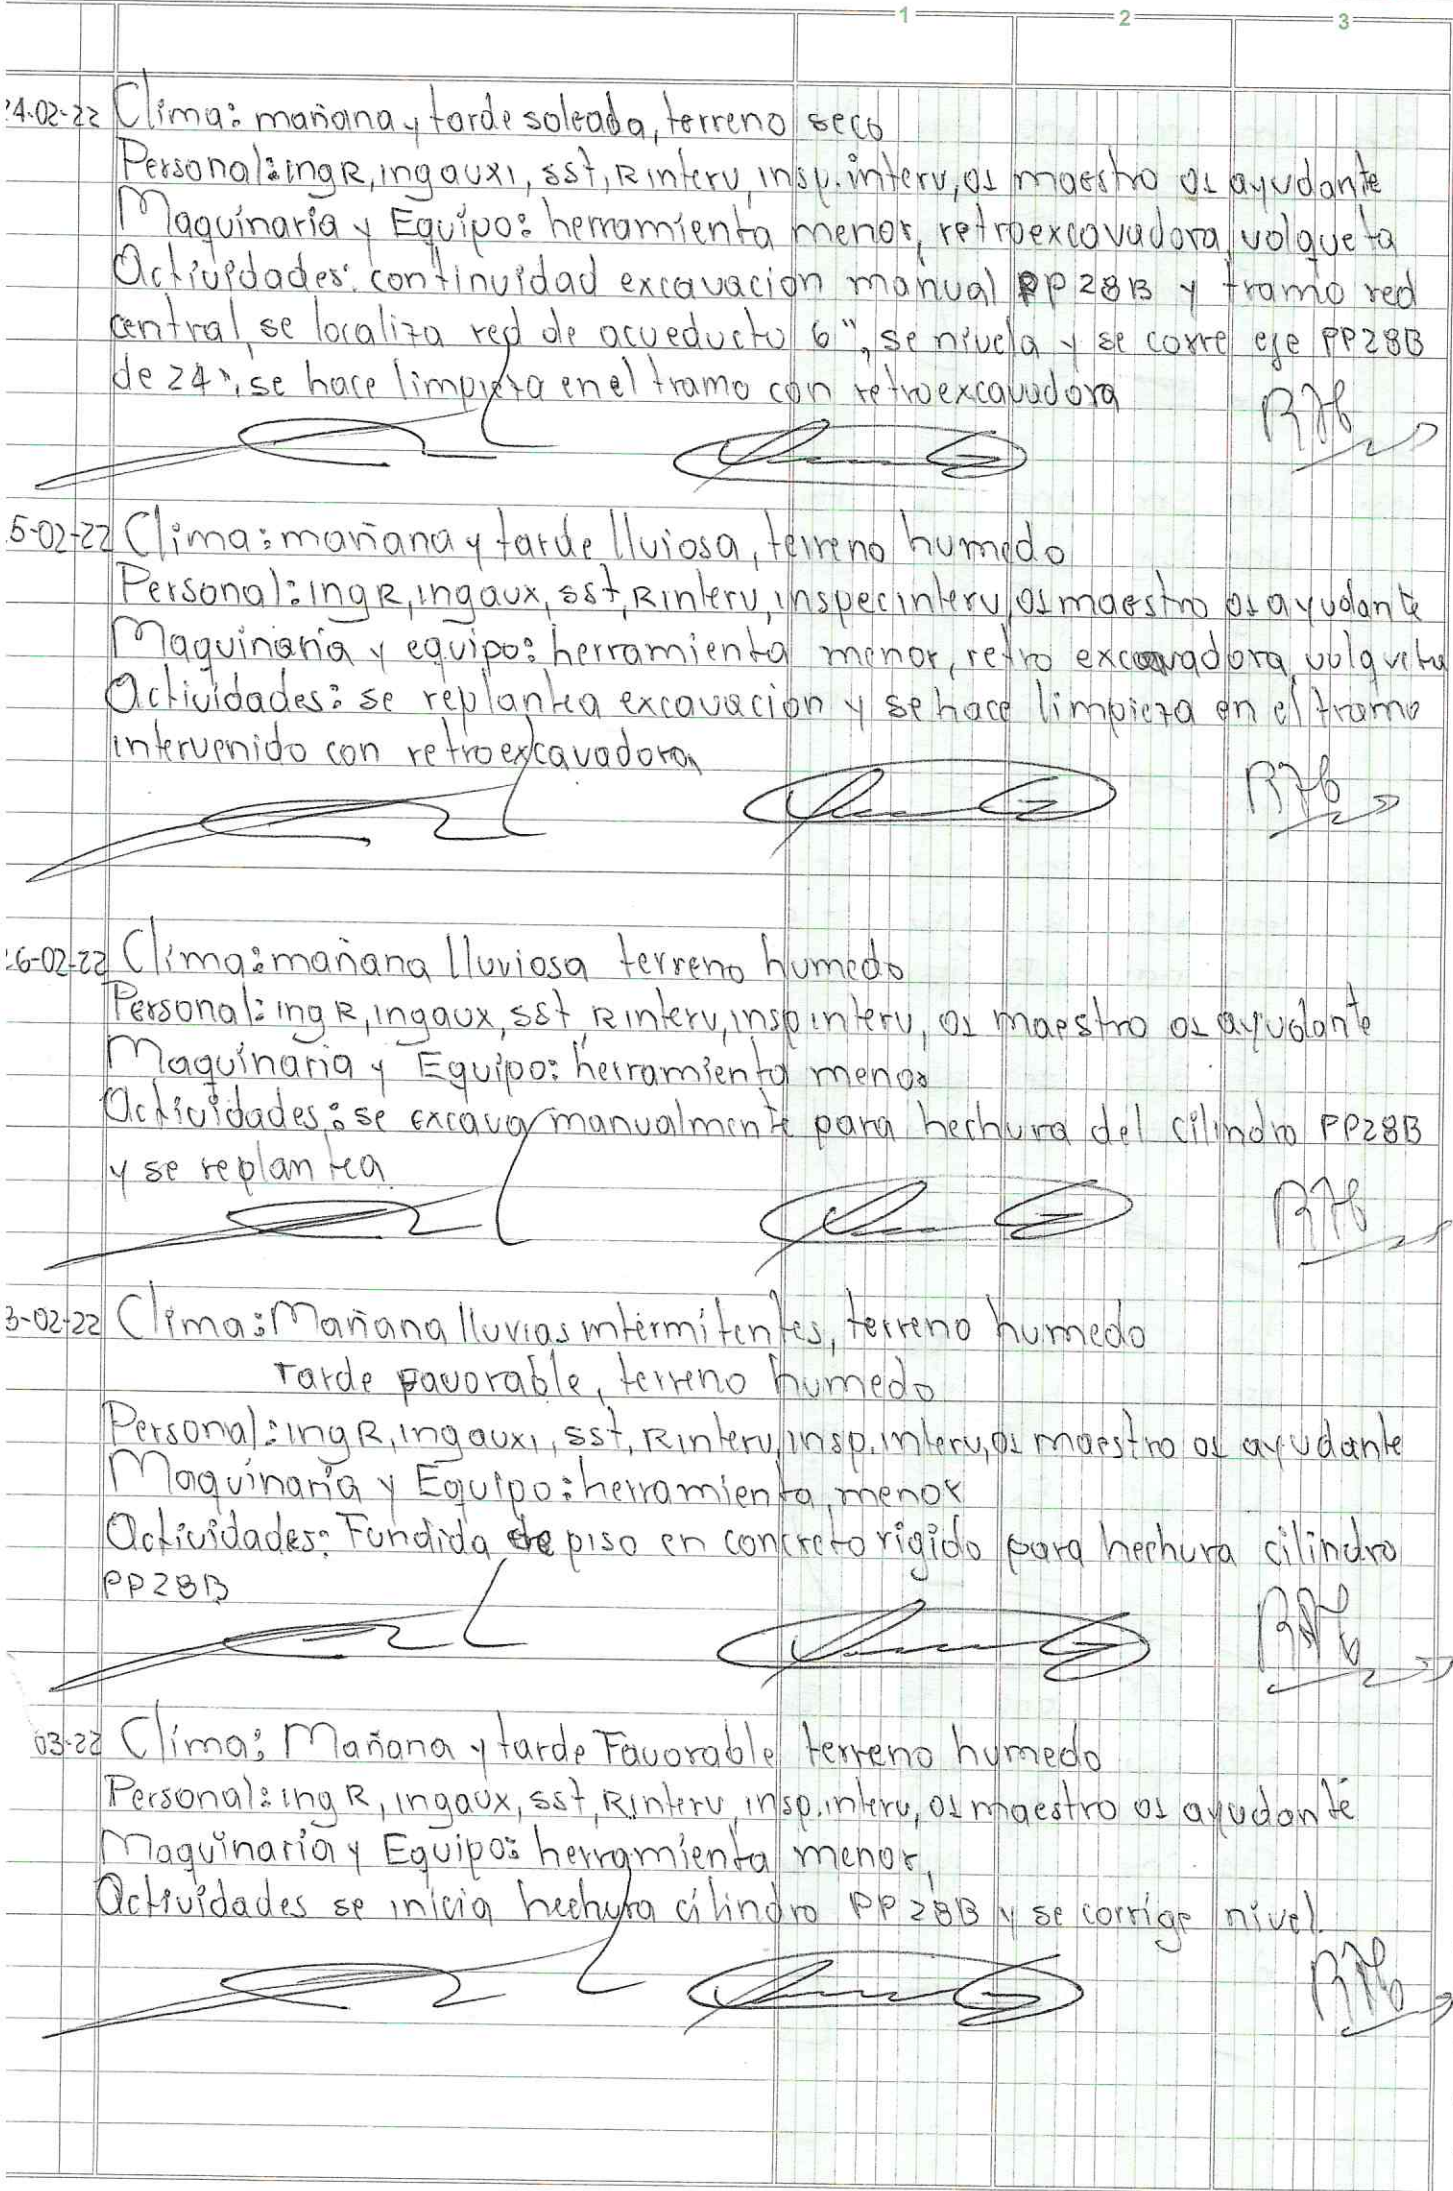 1 2 3
24-02-22 Clima: mañana y tarde soleada, terreno seco
Personal: ing R, ing auxi, sst, R interv, insp. interv, 01 maestro 01 ayudante
Maquinaria y Equipo: herramienta menor, retroexcavadora, volqueta
Actividades: continuidad excavación manual PP28B y tramo red
central, se localiza red de acueducto 6", se nivela y se corre eje PP28B
de 24", se hace limpieza en el tramo con retroexcavadora
5-02-22 Clima: mañana y tarde lluiosa, terreno humedo
Personal: ing R, ing aux, sst, R interv, inspec interv, 01 maestro 01 ayudante
Maquinaria y equipo: herramienta menor, retro excavadora, volqueta
Actividades: se replantea excavación y se hace limpieza en el tramo
intervenido con retroexcavadora
26-02-22 Clima: mañana lluviosa terreno humedo
Personal: ing R, ing aux, sst, R interv, insp interv, 01 maestro 01 ayudante
Maquinaria y Equipo: herramienta menor
Actividades: se excava manualmente para hechura del cilindro PP28B
y se replantea.
8-02-22 Clima: Mañana lluvias intermitentes, terreno humedo
Tarde favorable, terreno humedo
Personal: ing R, ing auxi, sst, R interv, insp. interv, 01 maestro 01 ayudante
Maquinaria y Equipo: herramienta, menor
Actividades: Fundida de piso en concreto rigido para hechura cilindro
PP28B
03-22 Clima: Mañana y tarde Favorable terreno humedo
Personal: ing R, ing aux, sst, R interv, insp. interv, 01 maestro 01 ayudante
Maquinaria y Equipo: herramienta menor,
Actividades se inicia hechura cilindro PP28B y se corrige nivel.